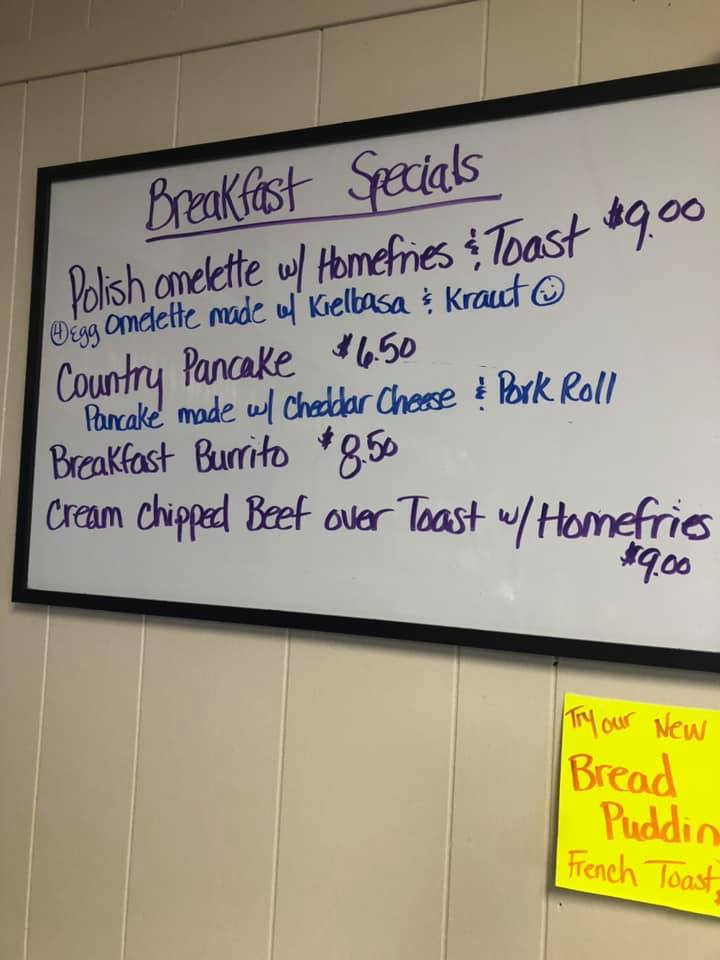 Breakfast Specials
Polish omelette w/ Homefries & Toast $9.00
④ Egg Omelette made w/ Kielbasa & Kraut ☺
Country Pancake $6.50
Pancake made w/ Cheddar Cheese & Pork Roll
Breakfast Burrito $8.50
Cream Chipped Beef over Toast w/ Homefries
$9.00
Try our New
Bread
Puddin
French Toast